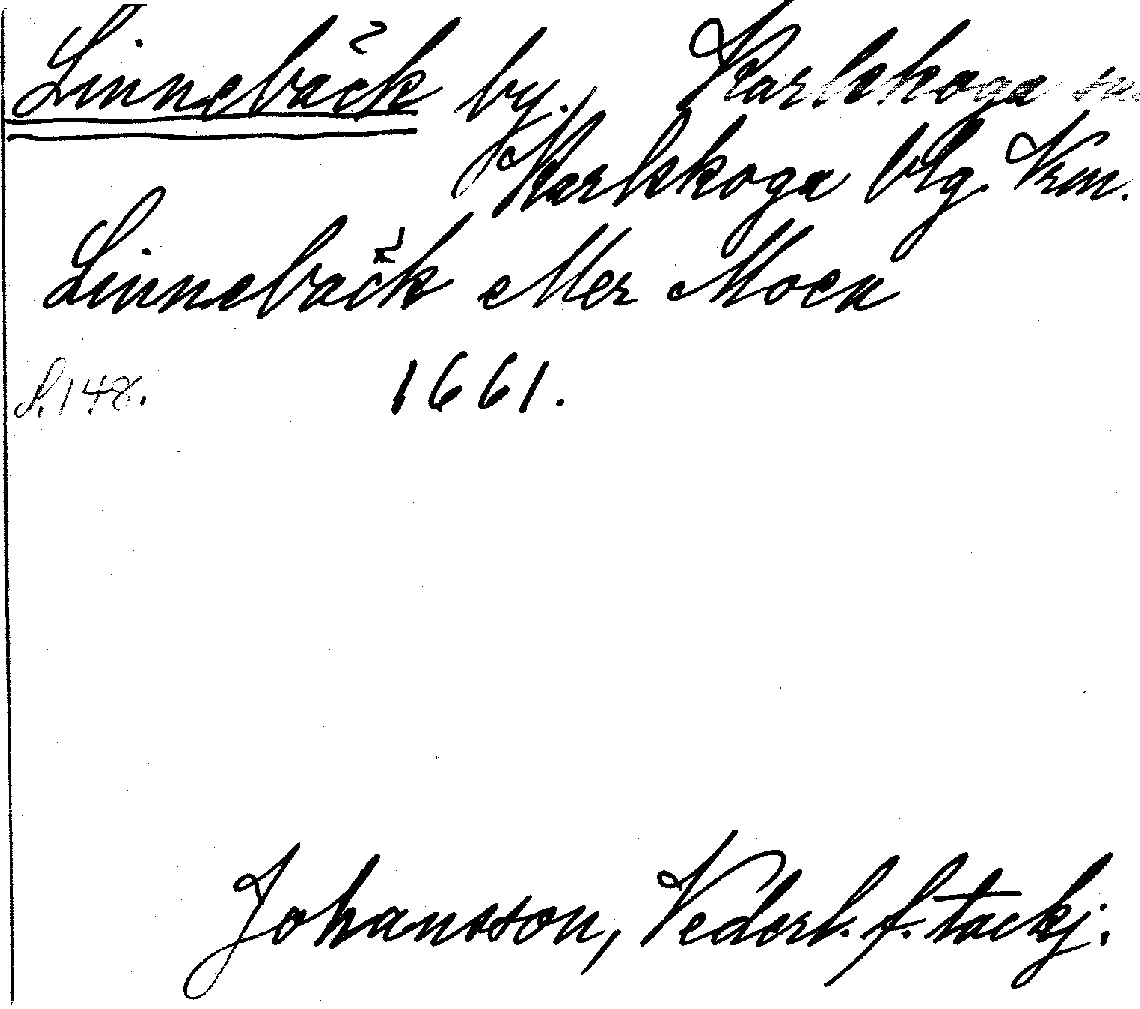 Linnebäck by, Karlskoga sn
Karlskoga blg. Krm.
Linnebäck eller Moen
S. 148. 1661.
Johansson, Vederl. f. tackj.